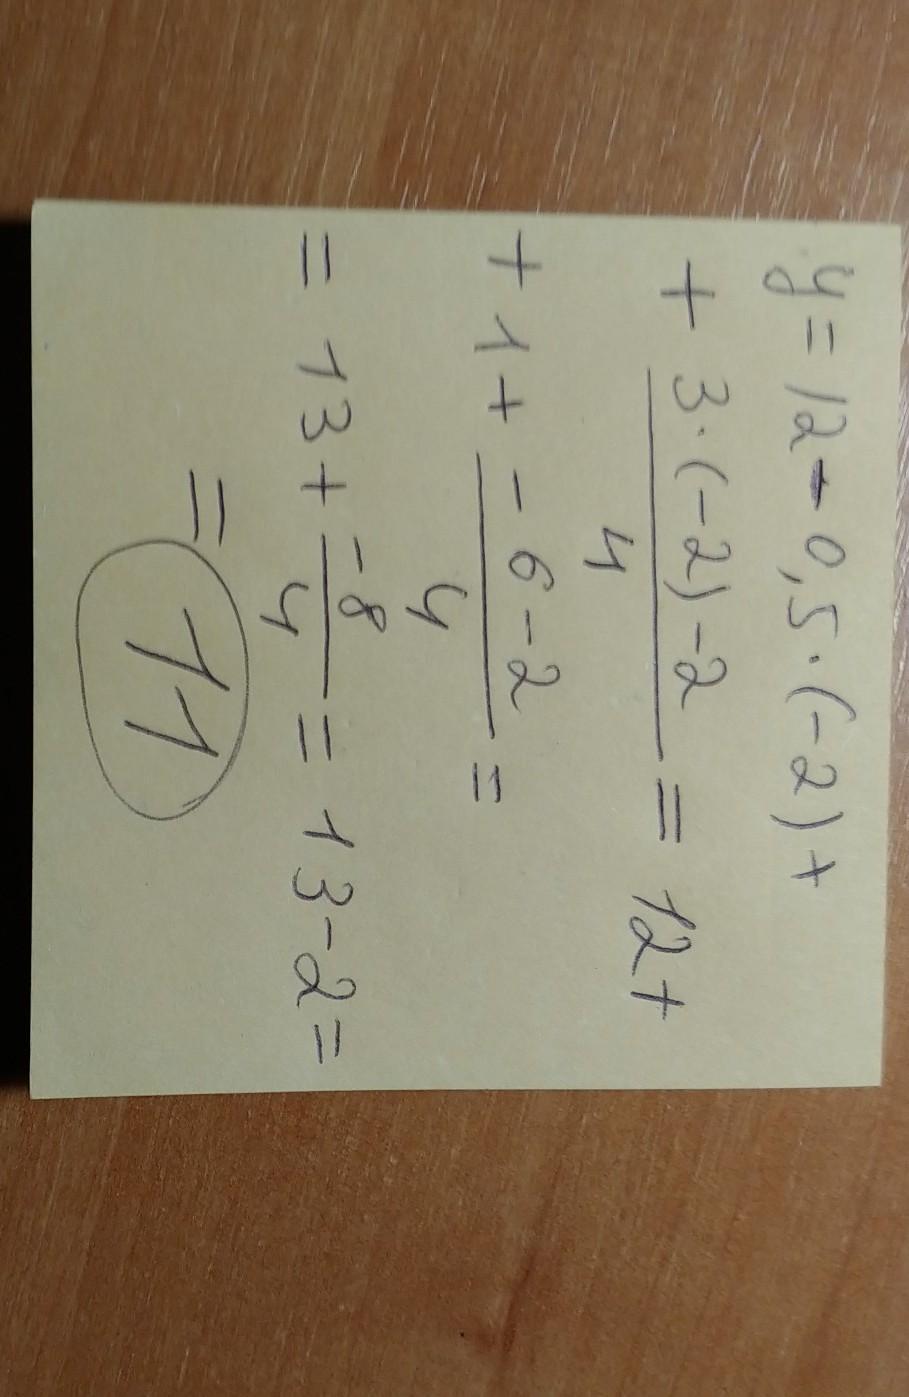 y = 12 - 0,5·(-2) +
+ \frac{3·(-2)-2}{4} = 12 +
+ 1 + \frac{-6-2}{4} =
= 13 + \frac{-8}{4} = 13 - 2 =
= 11